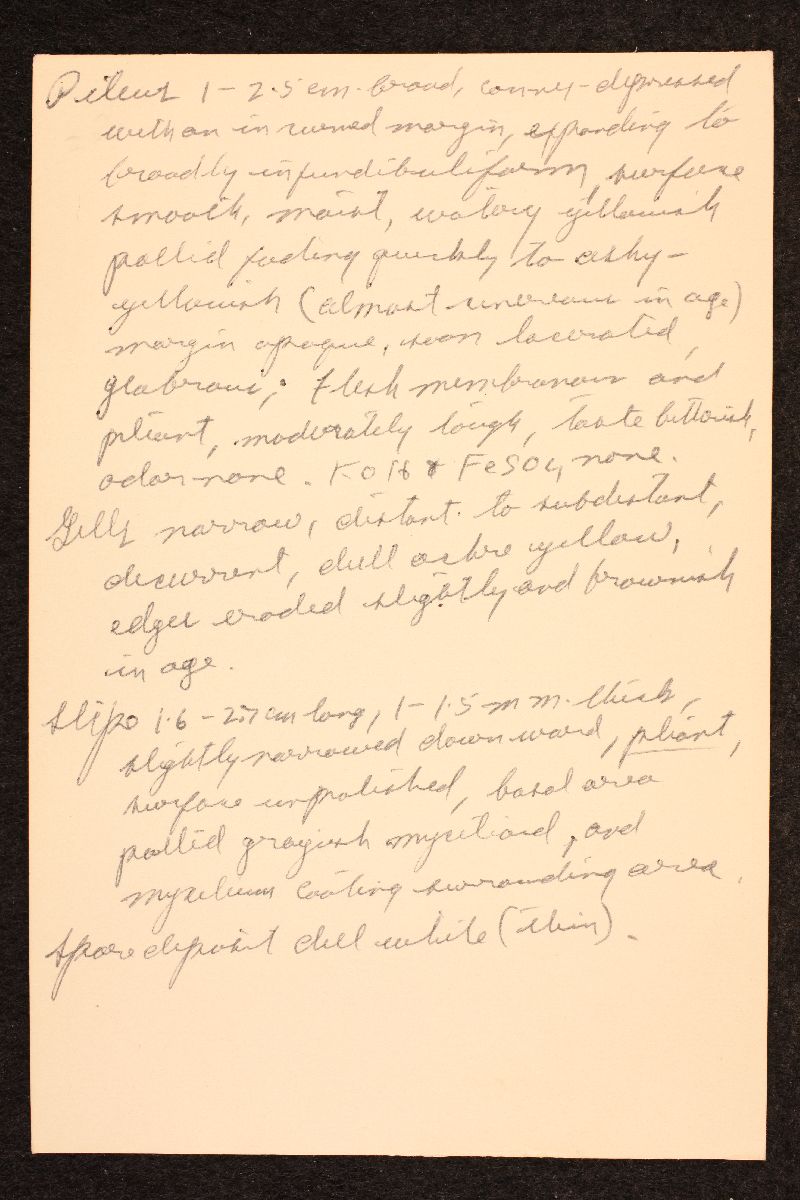 Pileus 1 – 2.5 cm. broad, convex-depressed
with an incurved margin, expanding to
broadly infundibuliform, surface
smooth, moist, watery yellowish
pallid fading quickly to ashy-
yellowish (almost cinereous in age)
margin opaque, soon lacerated,
glabrous; Flesh membranous and
pliant, moderately tough, taste bitterish,
odor none. KOH & FeSO4 none.
Gills narrow, distant to subdistant,
decurrent, dull ochre yellow,
edges eroded slightly and brownish
in age.
Stipe 1.6 – 2.7 cm long, 1 – 1.5 mm. thick,
slightly narrowed downward, pliant,
surface unpolished, basal area
pallid grayish mycelioid, and
mycelium coating surrounding area.
Spore deposit dull white (thin).